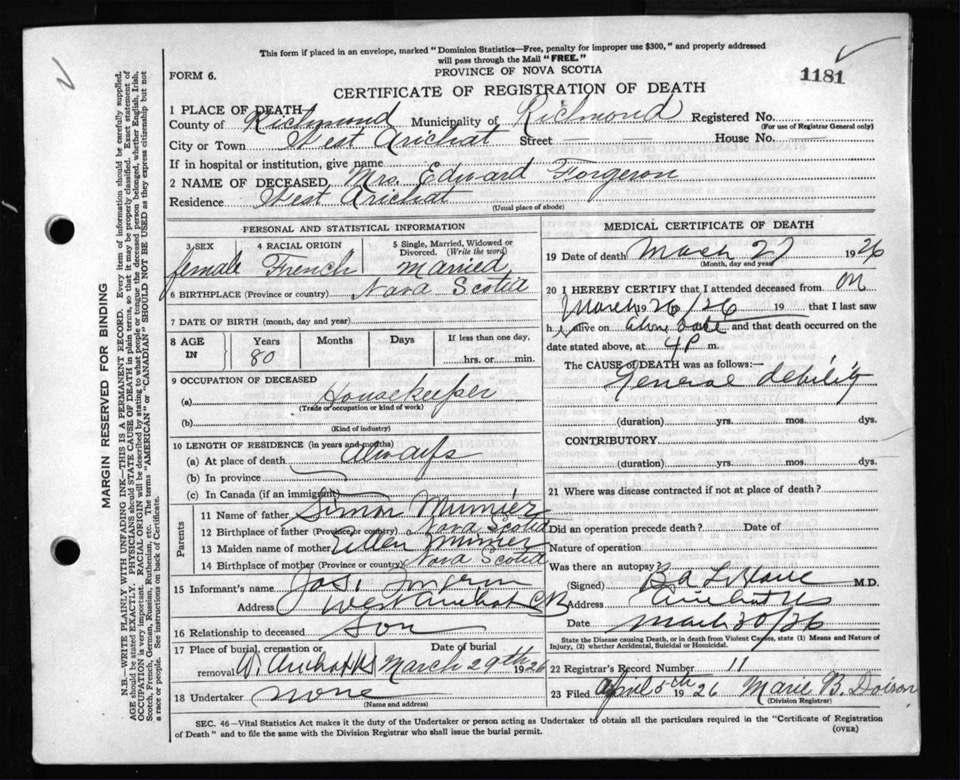 This form if placed in an envelope, marked "Dominion Statistics—Free, penalty for improper use $300," and properly addressed
will pass through the Mail "FREE."
FORM 6.
PROVINCE OF NOVA SCOTIA
1181
CERTIFICATE OF REGISTRATION OF DEATH
1 PLACE OF DEATH
County of Richmond Municipality of Richmond Registered No.
(For use of Registrar General only)
City or Town West Arichat Street House No.
If in hospital or institution, give name
2 NAME OF DECEASED Mrs. Edward Forgeron
Residence West Arichat
(Usual place of abode)
PERSONAL AND STATISTICAL INFORMATION
3 SEX 4 RACIAL ORIGIN 5 Single, Married, Widowed or Divorced. (Write the word)
female French Married
6 BIRTHPLACE (Province or country) Nova Scotia
7 DATE OF BIRTH (month, day and year)
8 AGE IN Years Months Days If less than one day,
80 hrs. or min.
9 OCCUPATION OF DECEASED
(a) Housekeeper
(Trade or occupation or kind of work)
(b)
(Kind of industry)
10 LENGTH OF RESIDENCE (in years and months)
(a) At place of death always
(b) In province
(c) In Canada (if an immigrant)
Parents
11 Name of father Simon
12 Birthplace of father (Province or country) Nova Scotia
13 Maiden name of mother Ellen
14 Birthplace of mother (Province or country) Nova Scotia
15 Informant's name Jos.
Address West Arichat CB
16 Relationship to deceased Son
17 Place of burial, cremation or removal W. Arichat NS Date of burial March 29th 1926
18 Undertaker none
(Name and address)
MEDICAL CERTIFICATE OF DEATH
19 Date of death March 27 1926
(Month, day and year)
20 I HEREBY CERTIFY that I attended deceased from on
March 26/26 19 that I last saw
h alive on above date and that death occurred on the
date stated above, at 4 P m.
The CAUSE OF DEATH was as follows:—
General debility
(duration) yrs. mos. dys.
CONTRIBUTORY
(duration) yrs. mos. dys.
21 Where was disease contracted if not at place of death?
Did an operation precede death? Date of
Nature of operation
Was there an autopsy?
(Signed) B A LeBlanc M.D.
Address Arichat NS
Date March 30/26
State the Disease causing Death, or in death from Violent Causes, state (1) Means and Nature of
Injury, (2) whether Accidental, Suicidal or Homicidal.
22 Registrar's Record Number 11
23 Filed April 5th 1926 Marie B. Doiron
(Division Registrar)
SEC. 46—Vital Statistics Act makes it the duty of the Undertaker or person acting as Undertaker to obtain all the particulars required in the "Certificate of Registration
of Death" and to file the same with the Division Registrar who shall issue the burial permit.
(OVER)
MARGIN RESERVED FOR BINDING
N.B.—WRITE PLAINLY WITH UNFADING INK—THIS IS A PERMANENT RECORD. Every item of information should be carefully supplied.
AGE should be stated EXACTLY. PHYSICIANS should STATE CAUSE OF DEATH in plain terms, so that it may be properly classified. Exact statement of
OCCUPATION is very important. RACIAL ORIGIN will be described by stating to what people or tongue the deceased person belonged, whether English, Irish,
Scotch, French, German, Russian, Ruthenian, etc. The terms "AMERICAN" or "CANADIAN" SHOULD NOT BE USED as they express citizenship but not
a race or people. See instructions on back of Certificate.